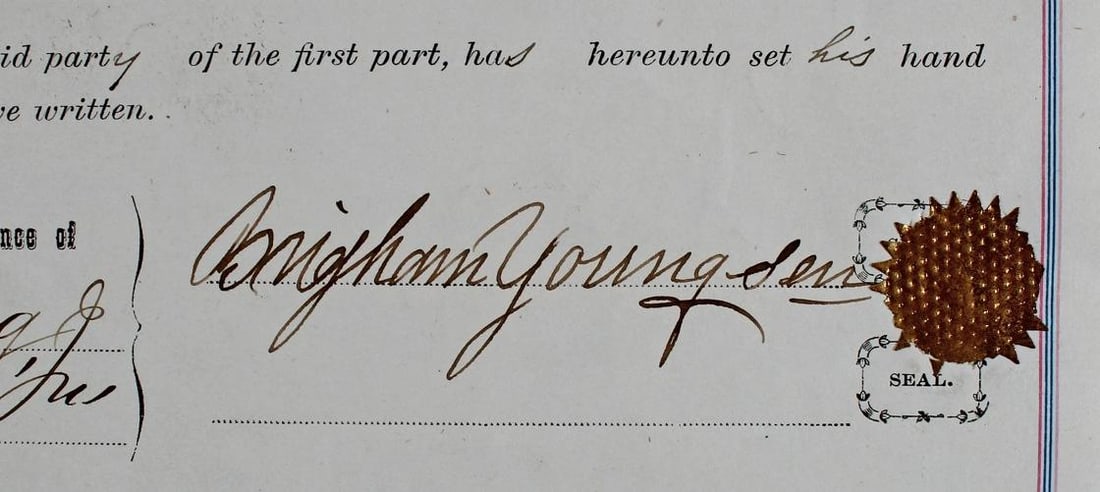 id party of the first part, has hereunto set his hand
ve written.
nce of
Brigham Young sen
SEAL.